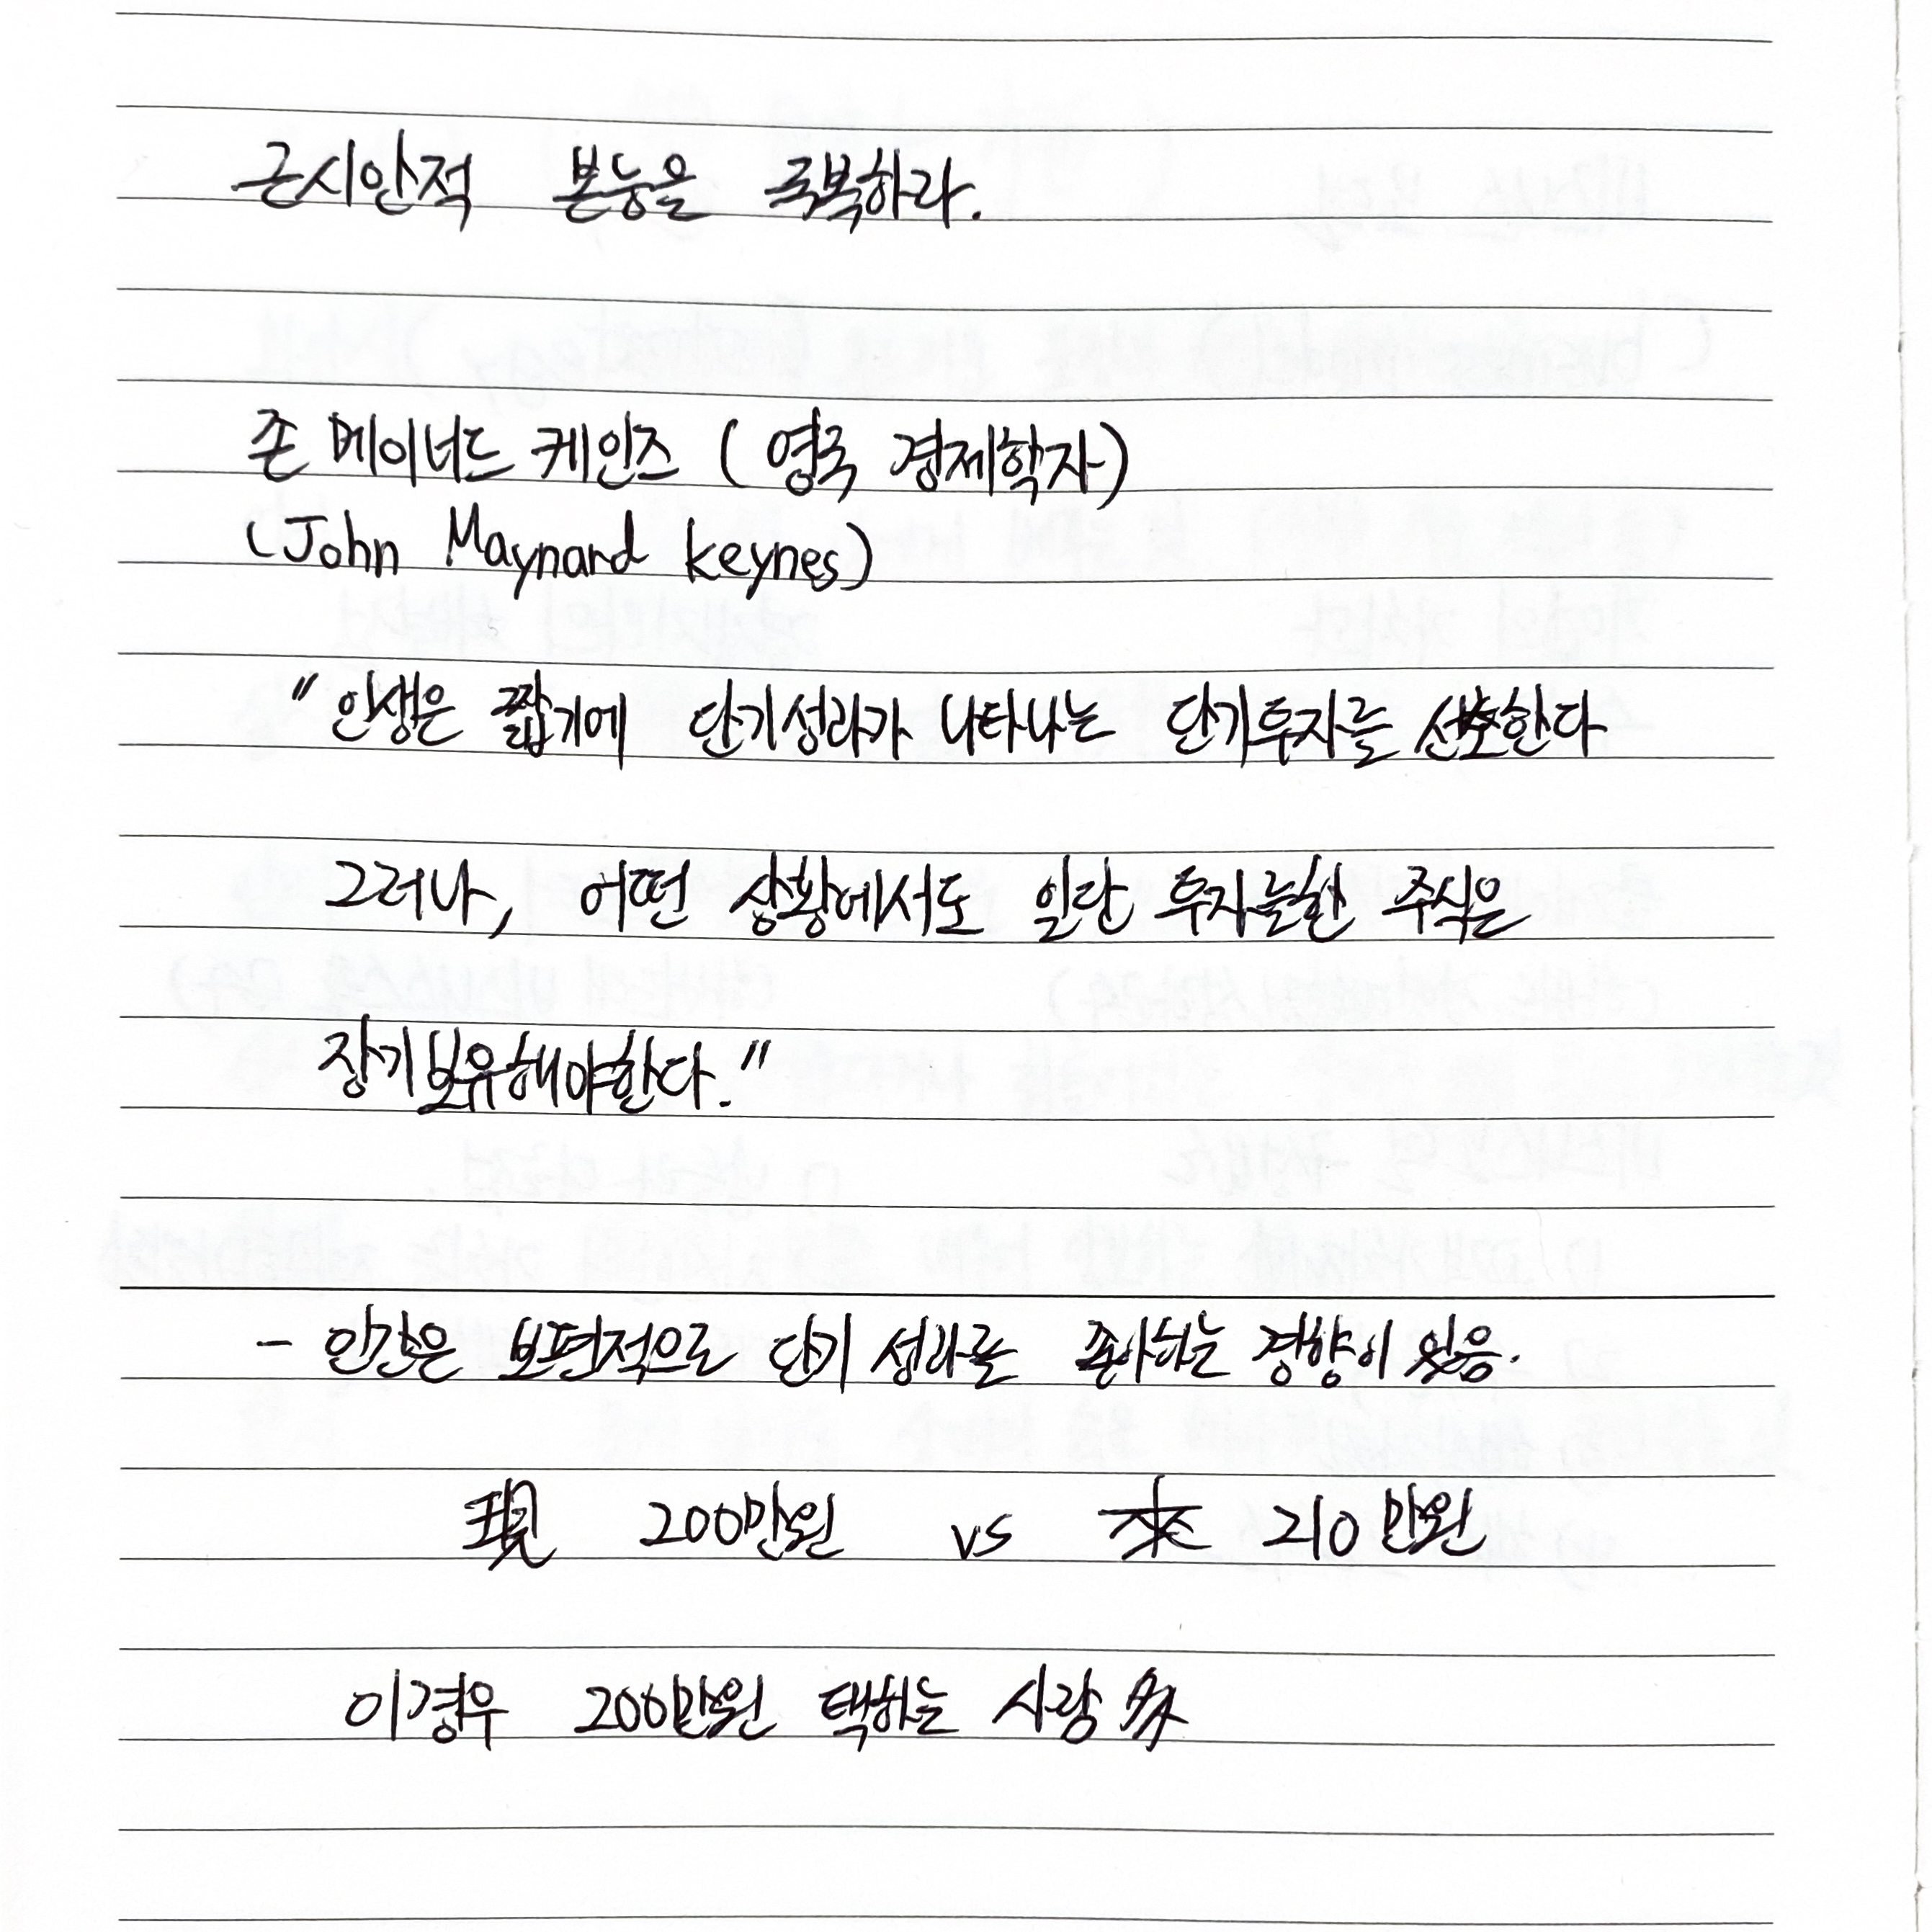 근시안적 본능을 극복하라.
존 메이너드 케인즈 (영국 경제학자)
(John Maynard keynes)
"인생은 짧기에 단기성과가 나타나는 단기투자를 선호한다
그러나, 어떤 상황에서도 일단 투자를한 주식은
장기보유해야한다."
- 인간은 보편적으로 단기 성과를 좋아하는 경향이 있음.
現 200만원 vs 來 210만원
이경우 200만원 택하는 사람 多